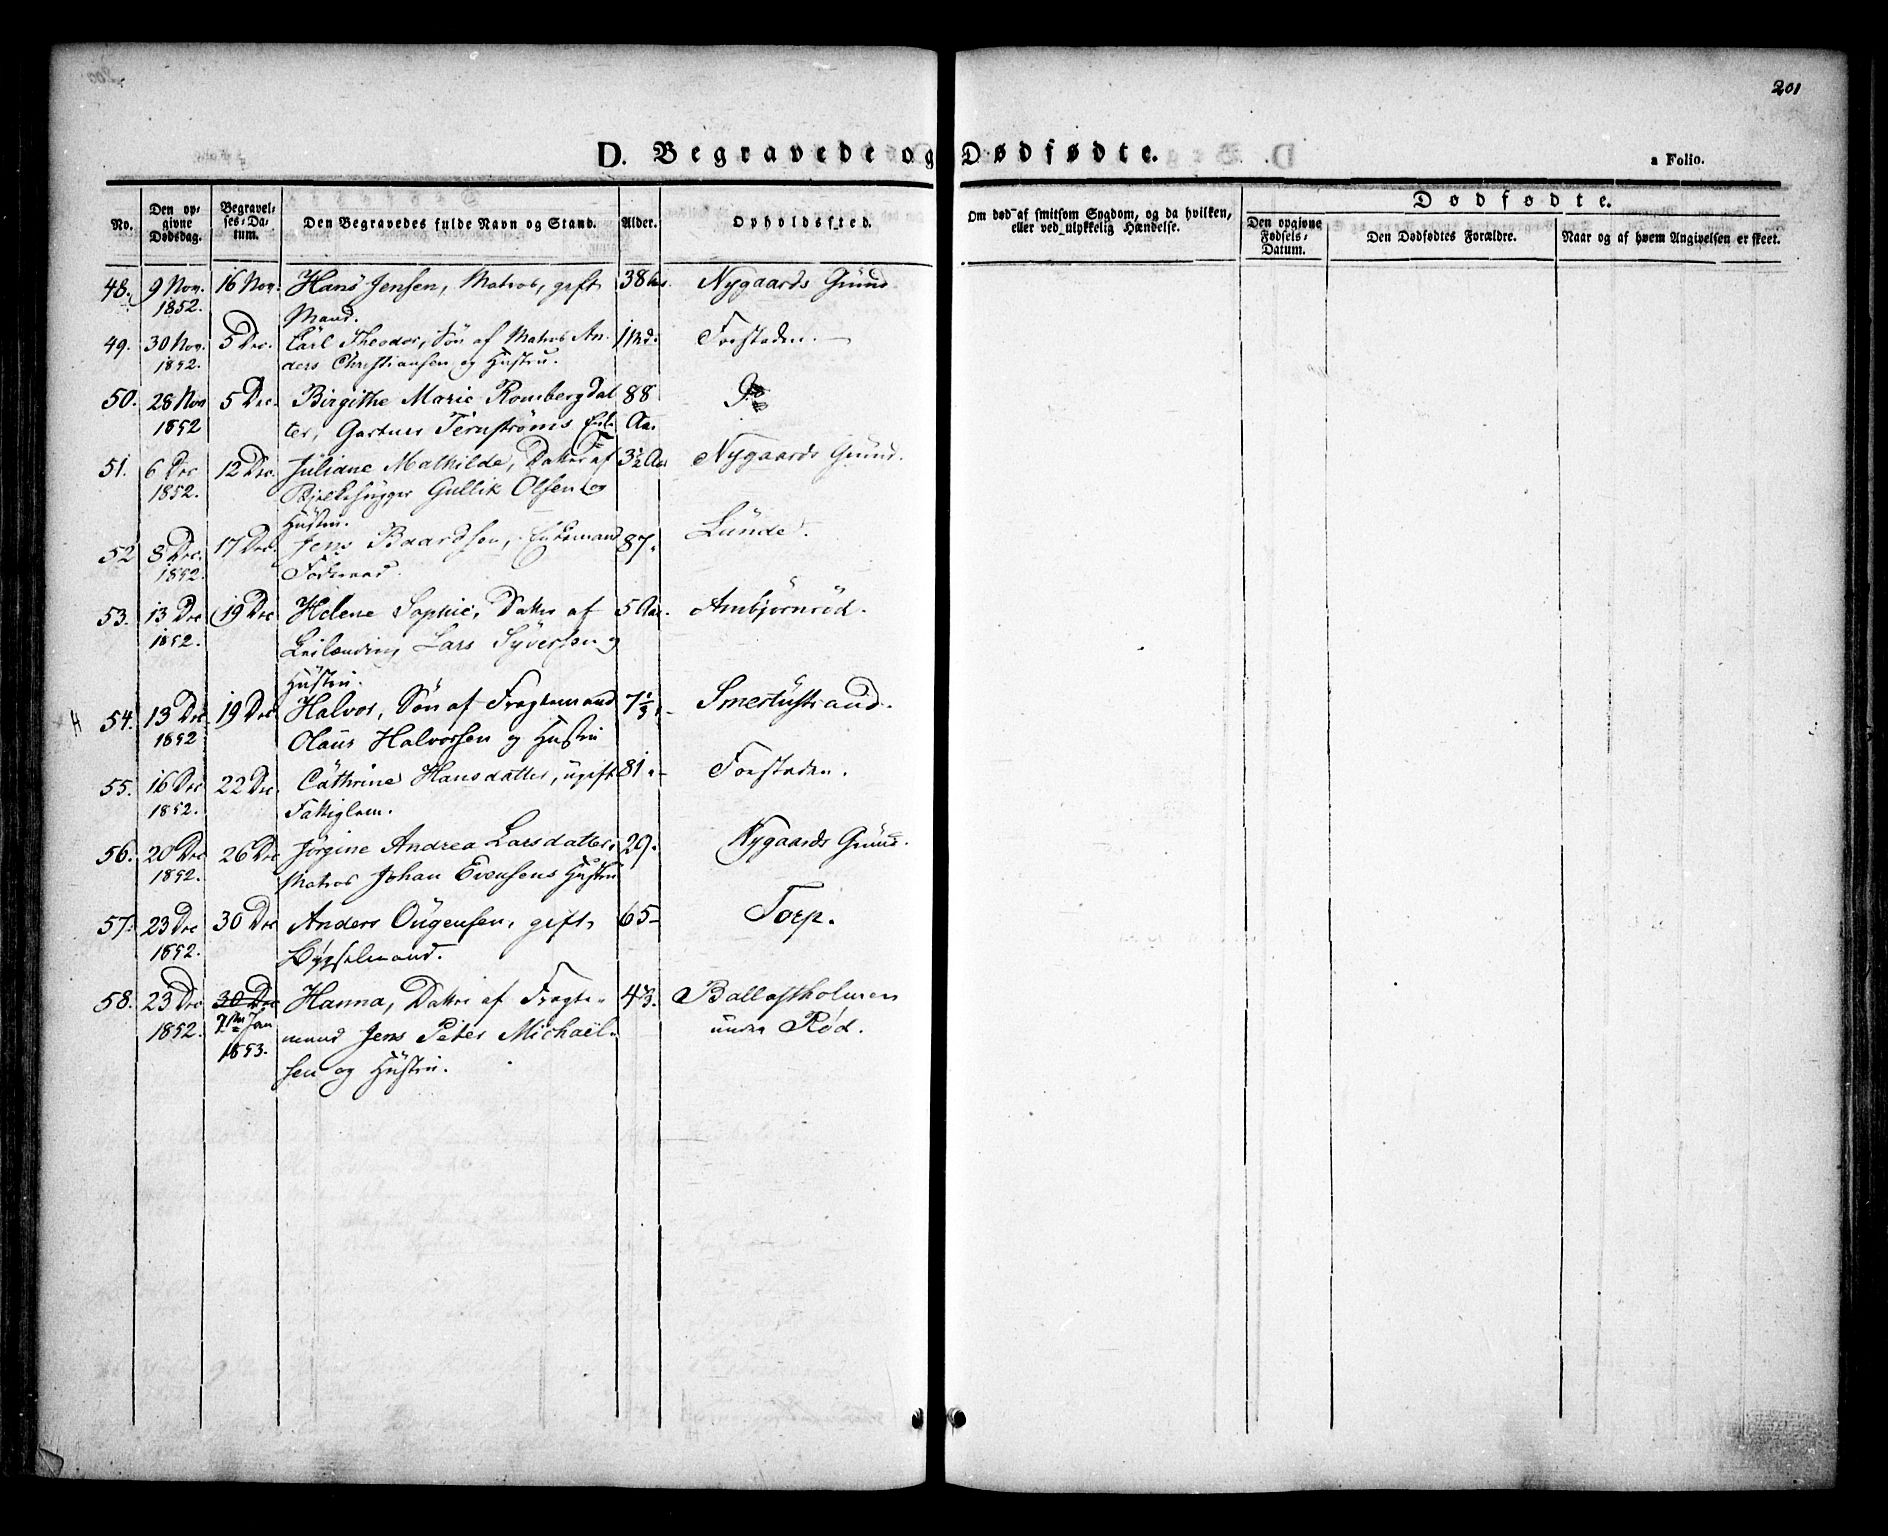 201
D. Begravede og Dødfødte.
a Folio.
No.
Den op-
givne
Dødsdag.
Begravel-
ses-Da-
tum.
Den Begravedes fulde Navn og Stand.
Alder.
Opholdssted.
Om død af smitsom Sygdom, og da hvilken,
eller ved ulykkelig Hændelse.
Dødfødte.
Den opgivne
Fødsels-
Datum.
Den Dødfødtes Forældre.
Naar og af hvem Angivelsen er skeet.
48. 9 Nov. 16 Nov. Hans Jensen, Matros, gift 38 Aar. Nygaards Grund
1852. Mand.
49. 30 Nov. 5 Dec. Carl Theodor, Søn af Matros An- 1 Md. Forstaden.
1852. ders Christiansen og Hustru.
50. 28 Nov 5 Dec. Birgithe Marie Romberg Dat 88
1852 ter, Gartner Ternstrøms Aar
51. 6 Dec 12 Dec. Juliane Mathilde, Datter af 3½ Aar Nygaards Grund.
1852. Bjelkehugger Gullik Olsen og
Hustru.
52 8 Dec. 17 Dec. Jens Baardsen, Enkemand 87. Lunde.
1852. Fodermand.
53. 13 Dec 19 Dec Helene Sophie, Datter af 5 Aar. Ambjørnrød.
1852. Leilænding Lars Syversen og
Hustru.
54. 13 Dec 19 Dec Halvor, Søn af Fragtemand 7⅓. Smertustrand.
1852 Olaus Halvorsen og Hustru
55. 16 Dec 22 Dec Cathrine Hansdatter, ugift 81. Forstaden.
1852. Fattiglem.
56. 20 Dec 26 Dec Jørgine Andrea Larsdatter, 29. Nygaards Grund.
1852. Matros Johan Evensens Hustru
57. 23 Dec 30 Dec Anders Ougensen, gift 65 Torp.
1852. Bygselmand.
58. 23 Dec 30 Dec Hanna, Datter af Fragte- Ballastholmen
1852. Jan mand Jens Peter Michael- under Rød.
1853. sen og Hustru.